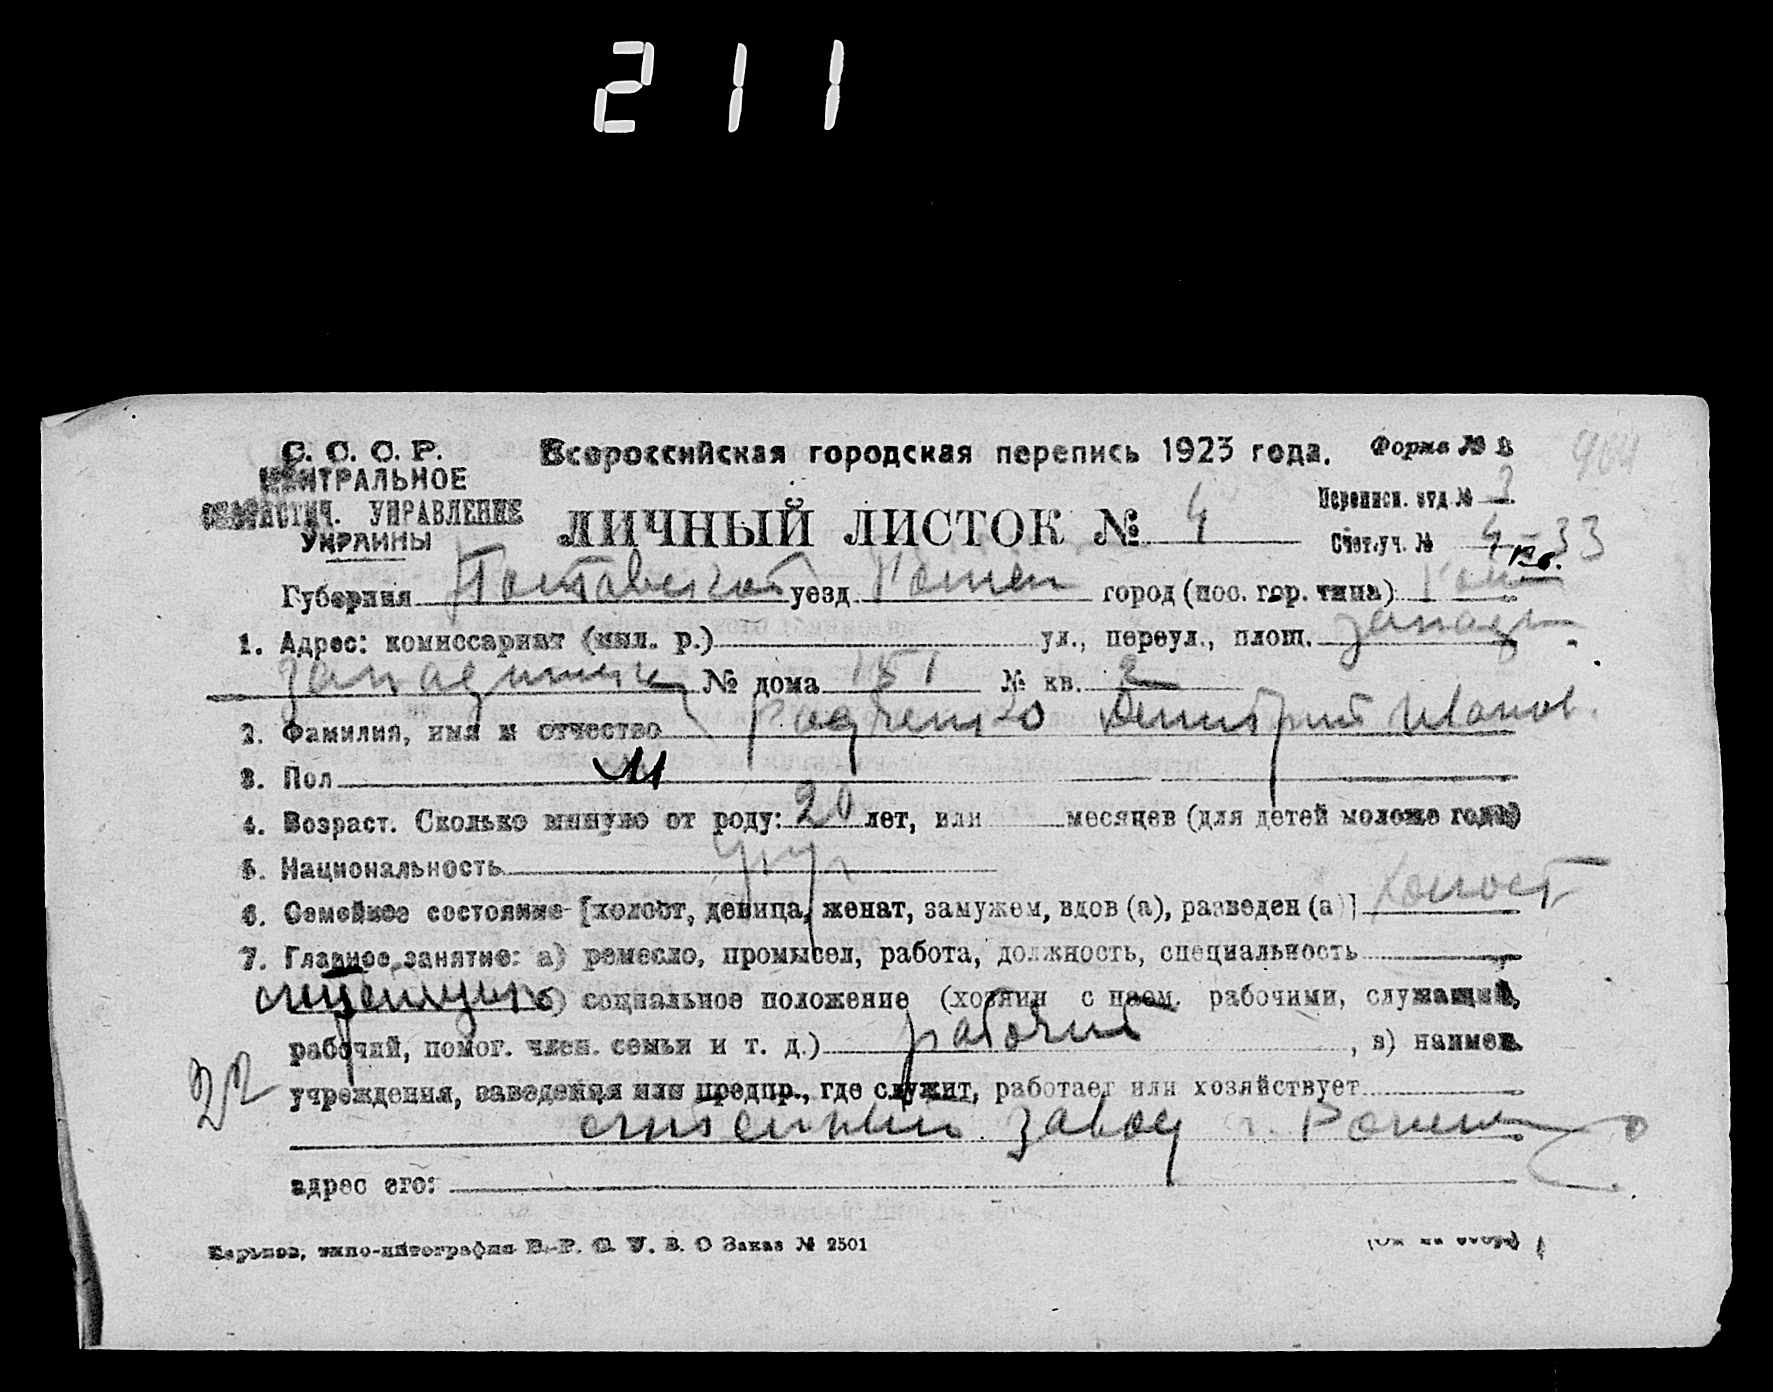 211
С. С. С. Р.
ЦЕНТРАЛЬНОЕ
СТАТИСТИЧ. УПРАВЛЕНИЕ
УКРАИНЫ
Всероссийская городская перепись 1923 года.
Форма № 2
904
ЛИЧНЫЙ ЛИСТОК № 4
Переписн. отд. № 3
Счет. уч. № 4 - 33
Губерния Полтавской уезд Ромен город (пос. гор. типа) Ромн
1. Адрес: комиссариат (мил. р.) ул., переул., площ.
№ дома 151 № кв. 2
2. Фамилия, имя и отчество Радченко Дмитрий Иванов.
3. Пол М
4. Возраст. Сколько минуло от роду: 20 лет, или месяцев (для детей моложе года)
5. Национальность Укр
6. Семейное состояние [холост, девица, женат, замужем, вдов (а), разведен (а)] холост
7. Главное занятие: а) ремесло, промысел, работа, должность, специальность
б) социальное положение (хозяин с наем. рабочими, служащий,
рабочий, помог. член. семьи и т. д.) рабочий , в) наимен.
22 учреждения, заведения или предпр., где служит, работает или хозяйствует
завод г. Ромен
адрес его:
Харьков, типо-литография В. Р. С. У. В. О Заказ № 2501